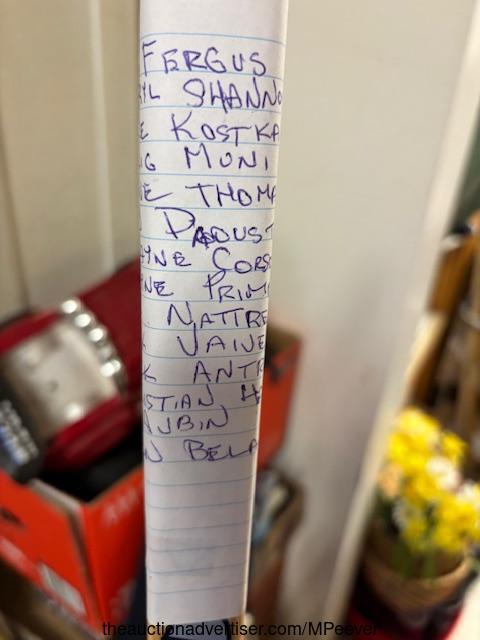 FERGUS
YL SHANNO
E KOSTKA
G MUNI
E THOMA
DAOUST
YNE CORS
NE PRIM
NATTRE
VAIVE
K ANT
STIAN H
AUBIN
N BELA
theauctionadvertiser.com/MPeever